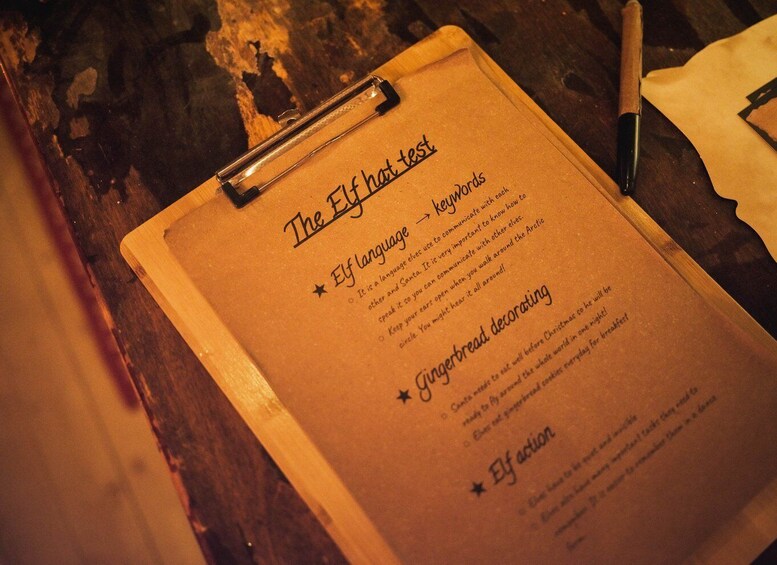 The Elf hat test
★ Elf language → keywords
○ It is a language elves use to communicate with each
other and Santa. It is very important to know how to
speak it so you can communicate with other elves.
○ Keep your ears open when you walk around the Arctic
circle. You might hear it all around!
★ Gingerbread decorating
○ Santa needs to eat well before Christmas so he will be
ready to fly around the whole world in one night!
○ Elves eat gingerbread cookies everyday for breakfast
★ Elf action
○ Elves have to be quiet and invisible
○ Elves also have many important tasks they need to
remember. It is easier to remember them in a dance